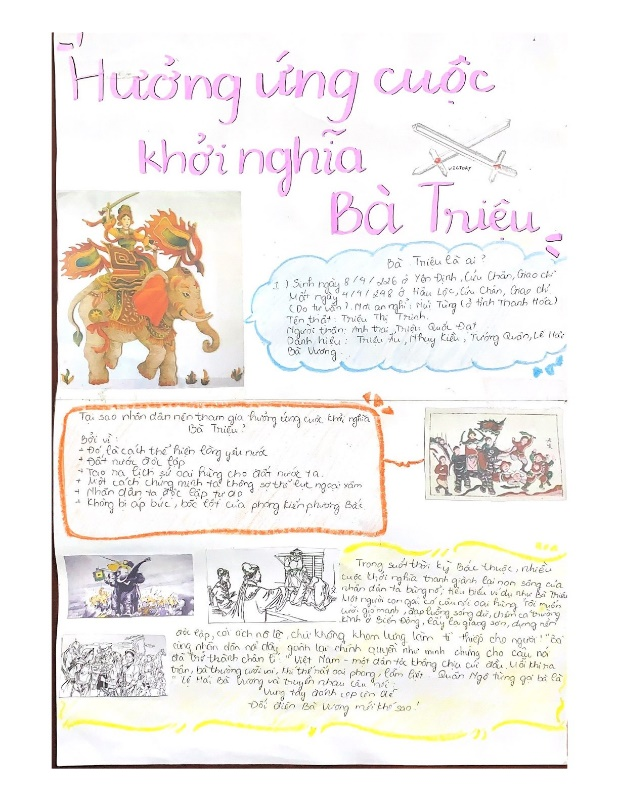 Hưởng ứng cuộc
khởi nghĩa
Bà Triệu
VICTORY
Bà Triệu là ai?
1.) Sinh ngày 8/9/226 ở Yên Định, Cửu Chân, Giao chỉ
Mất ngày 4/9/248 ở Hậu Lộc, Cửu Chân, Giao chỉ
(Do tự vẫn). Nơi an nghỉ: Núi Tùng (ở tỉnh Thanh Hoá)
Tên thật: Triệu Thị Trinh.
Người thân: Anh trai, Triệu Quốc Đạt
Danh hiệu: Triệu Ẩu, Nhụy Kiều, Tướng Quân, Lệ Hải
Bà Vương
Tại sao nhân dân nên tham gia hưởng ứng cuộc khởi nghĩa
Bà Triệu?
Bởi vì:
+ Đó là cách thể hiện lòng yêu nước
+ Đất nước độc lập
+ Tạo ra lịch sử oai hùng cho đất nước ta.
+ Một cách chứng minh ta không sợ thế lực ngoại xâm
+ Nhân dân ta độc lập tự do
+ Không bị áp bức, bốc lột của phong kiến phương Bắc
Trong suốt thời kỳ Bắc thuộc, nhiều
cuộc khởi nghĩa tranh giành lại non sông của
nhân dân ta bùng nổ, tiêu biểu ví dụ như Bà Triệu
Một người con gái có câu nói oai hùng "Tôi muốn
cưỡi gió mạnh, đạp luồng sóng dữ, chém cá trường
kình ở Biển Đông, lấy lại giang sơn, dựng nền
độc lập, cởi ách nô lệ, chứ không khom lưng làm tì thiếp cho người!" Bà
cùng nhân dân nổi dậy, giành lại chính quyền như minh chứng cho câu nói
đã trở thành chân lí "Việt Nam - một dân tộc không chịu cúi đầu. Mỗi khi ra
trận, bà thường cưỡi voi, khí thế rất oai phong, lẫm liệt. Quân Ngô từng gọi bà là
"Lệ Hải Bà Vương và truyền nhau câu nói:
Vung tay đánh cọp còn dễ
Đối diện Bà Vương mới khó sao!